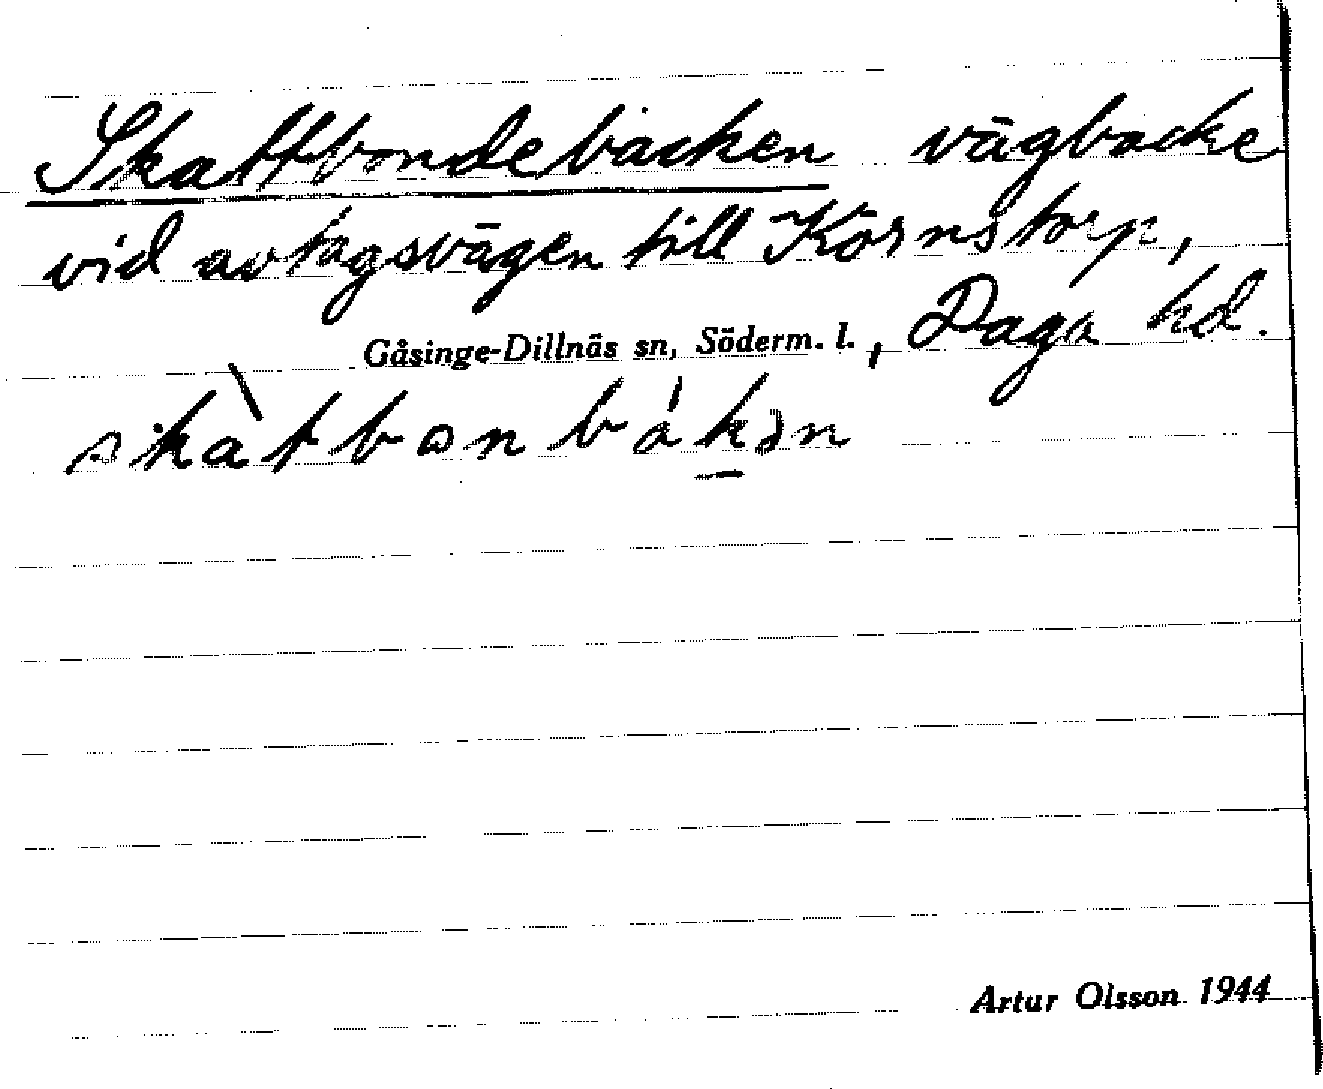 Skattbondebacken vägbacke
vid avtagsvägen till Körnstorp,
Gåsinge-Dillnäs sn, Söderm. l., Daga hd.
skàtbonbákən
Artur Olsson 1944